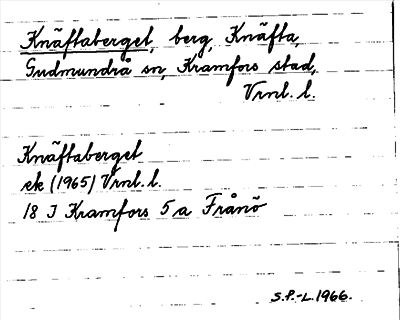 Knäftaberget, berg, Knäfta,
Gudmundrå sn, Kramfors stad,
Vrnl. l.
Knäftaberget
ek (1965) Vrnl. l.
18 J Kramfors 5 a Frånö
S.P.-L. 1966.